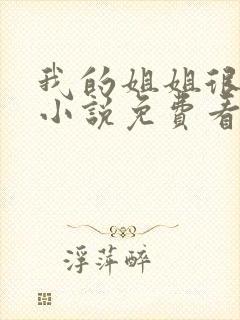 我的姐姐很
小说免费看
浮萍醉